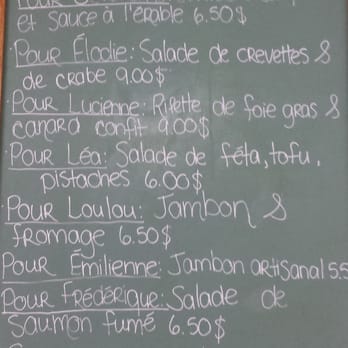 et sauce à l'érable 6.50$
Pour Élodie: Salade de crevettes &
de crabe 9.00$
Pour Lucienne: Rillette de foie gras &
canard confit 9.00$
Pour Léa: Salade de féta, tofu,
pistaches 6.00$
Pour Loulou: Jambon &
fromage 6.50$
Pour Émilienne: Jambon artisanal 5.5
Pour Frédérique: Salade de
Saumon fumé 6.50$